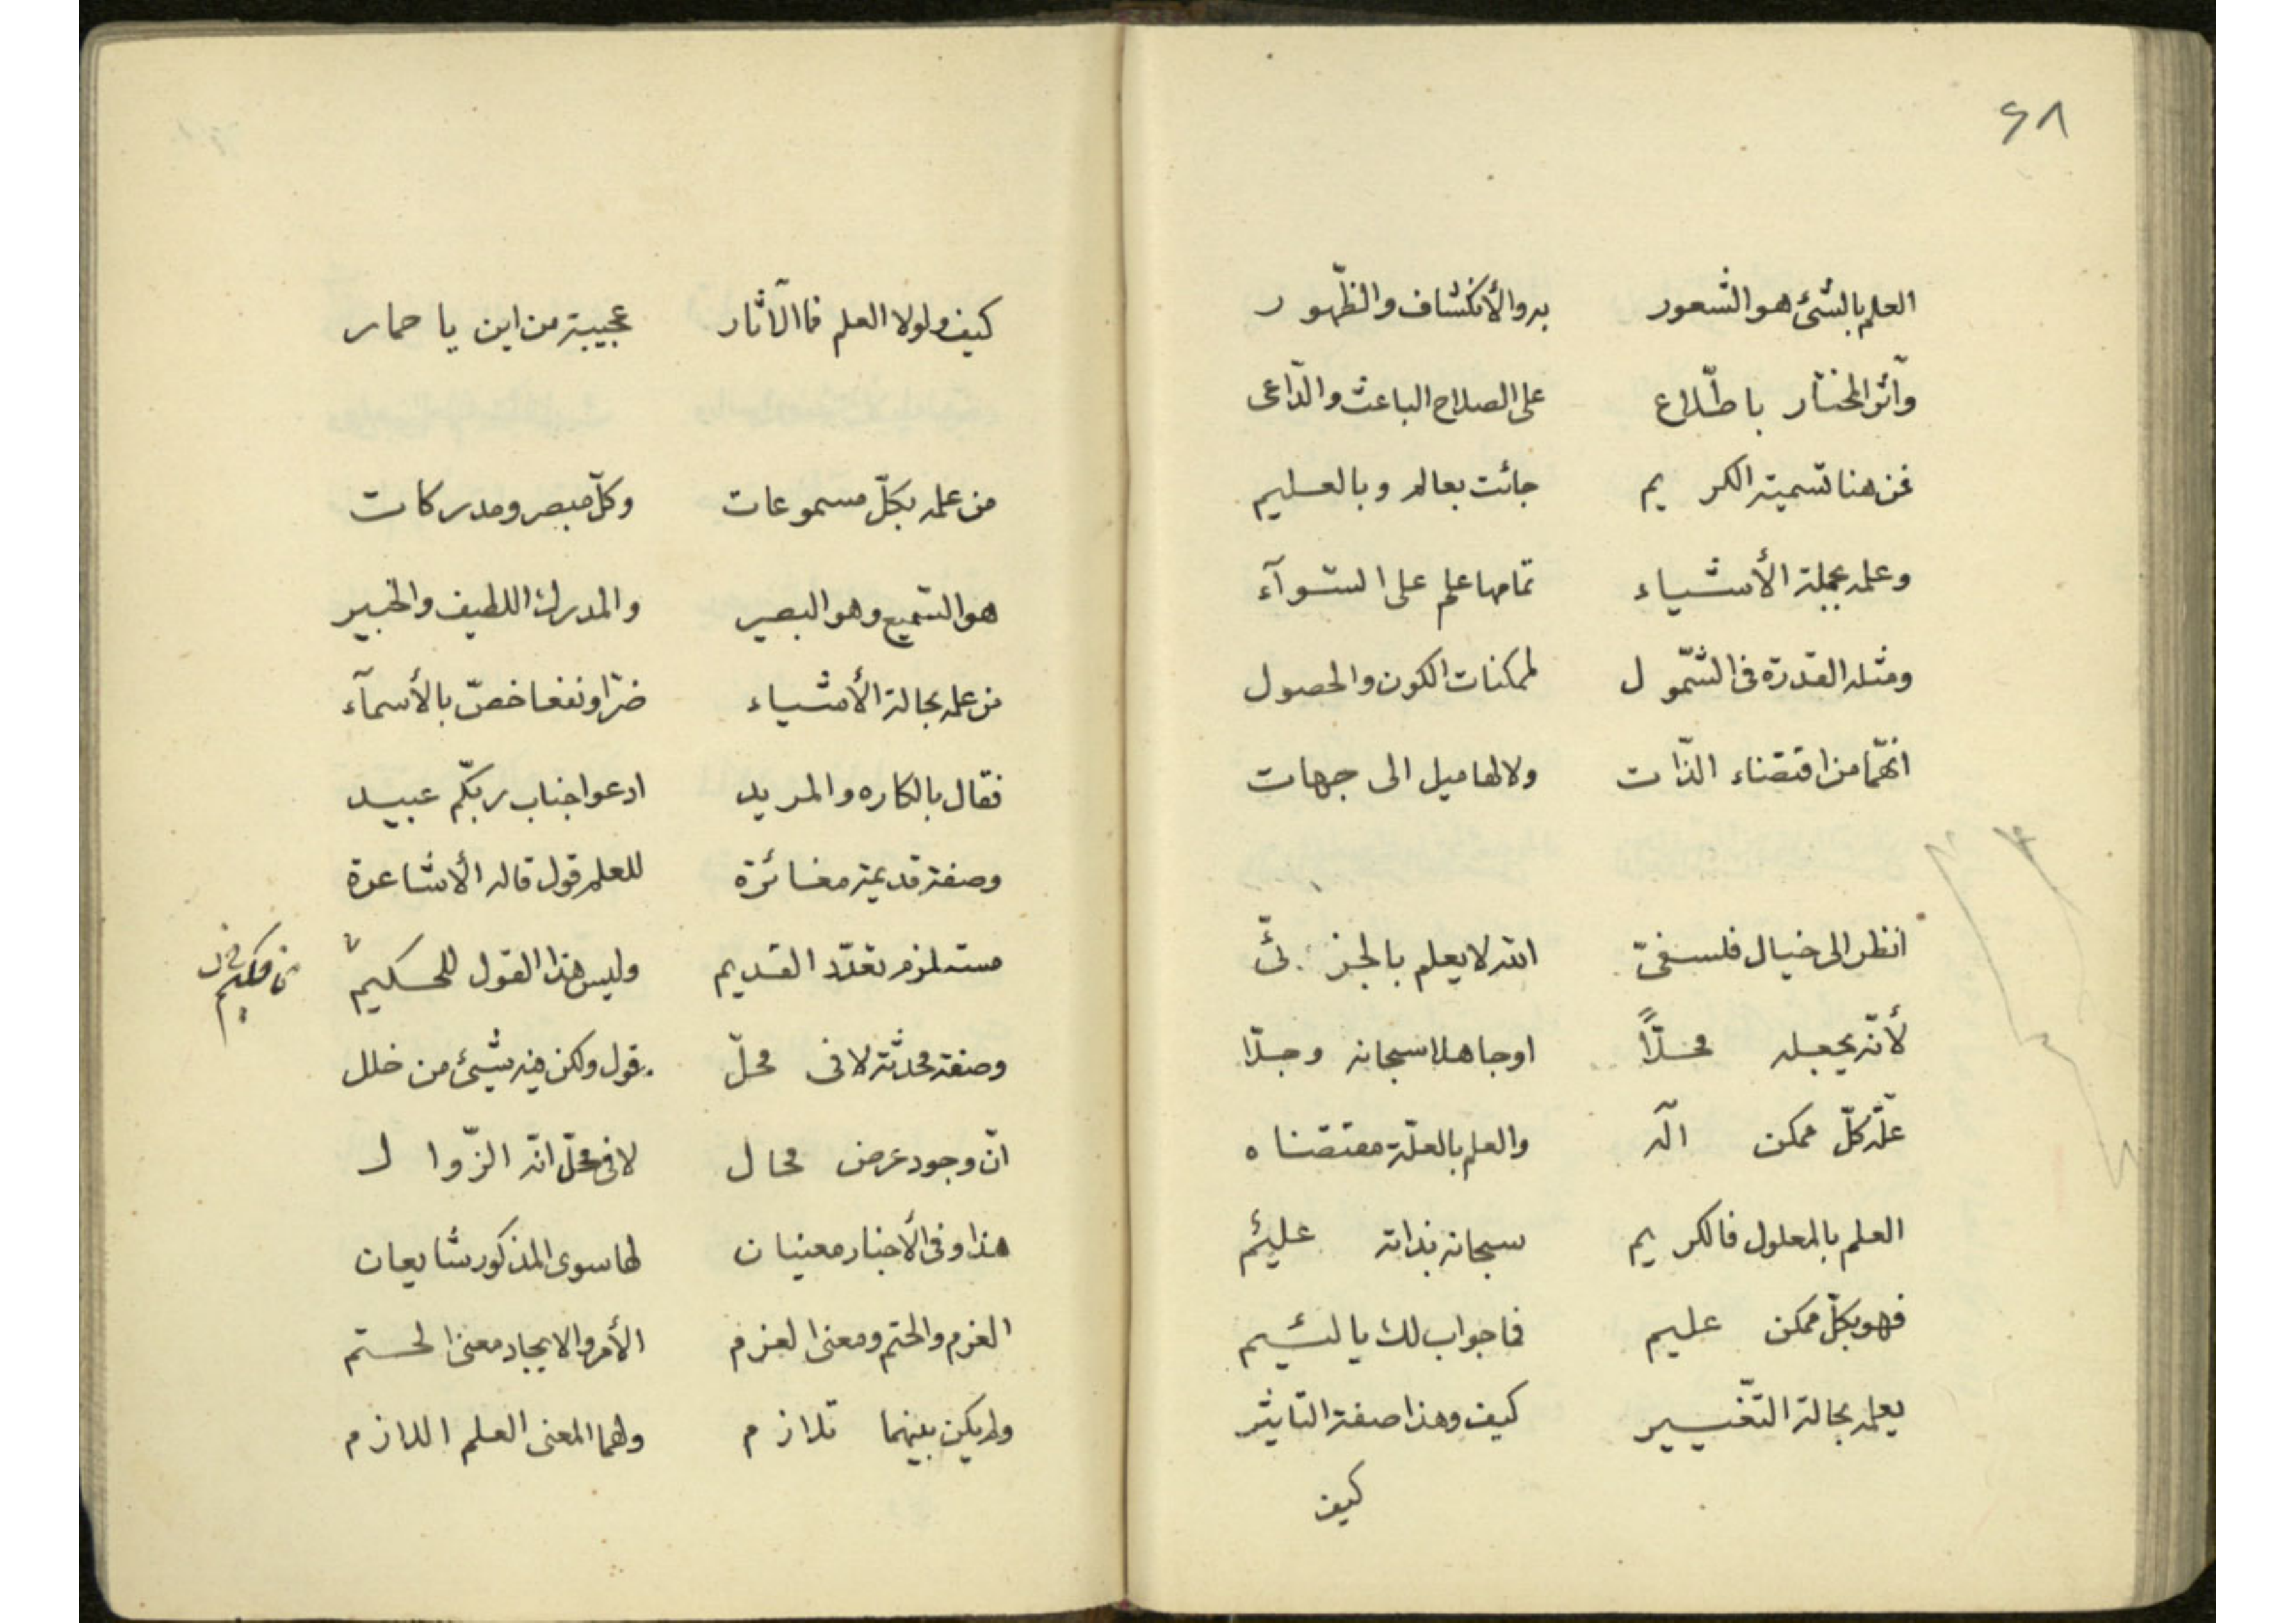 ۶۸
العلم بالشئ هو الشعور به والأنكشاف والظّهور
وآثر المختار باطّلاع على الصلاح الباعث والدّاعى
فمن هنا تسمية الكريم جائت بعالم وبالعليم
وعلمه بجملة الأشياء تمامها علم على السّوآء
ومثله القدرة فى الشّمول لممكنات الكون والحصول
انّهما من اقتضاء الذّات ولا لها ميل الى جهات
انظر الى خيال فلسفىّ الله لا يعلم بالجزئىّ
لأنّه يجعله محلًّا او جاهلا سبحانه وجلّا
علّة كلّ ممكن اله والعلم بالعلّة مقتضاه
العلم بالمعلول فالكريم سبحانه بذاته عليم
فهو بكلّ ممكن عليم فما جواب لك يا لئيم
يعلمه بحالة التّغيير كيف وهذا صفة التاثير
كيف
كيف ولولا العلم فما الآثار عجيبة من اين يا حمار
من علمه بكلّ مسموعات وكلّ مبصر ومدركات
هو السّميع وهو البصير والمدرك اللطيف والخبير
من علمه بحالة الأشياء ضرّا ونفعا خصّ بالأسمآء
فقال بالكاره والمريد ادعوا جناب ربّكم عبيد
وصفة قديمة مغائرة للعلم قول قاله الأشاعرة
مستلزم تعدّد القديم وليس هذا القول للحكيم
وصفة محدثة لا فى محلّ قول ولكن فيه شيئ من خلل
انّ وجود عرض محال لا فى محلّ انّه الزّوال
هذا وفى الأخبار معنيان لها سوى المذكور شايعان
العزم والحتم ومعنى العزم الأمر والايجاد معنى الحتم
ولم يكن بينهما تلازم ولهما المعنى العلم اللازم